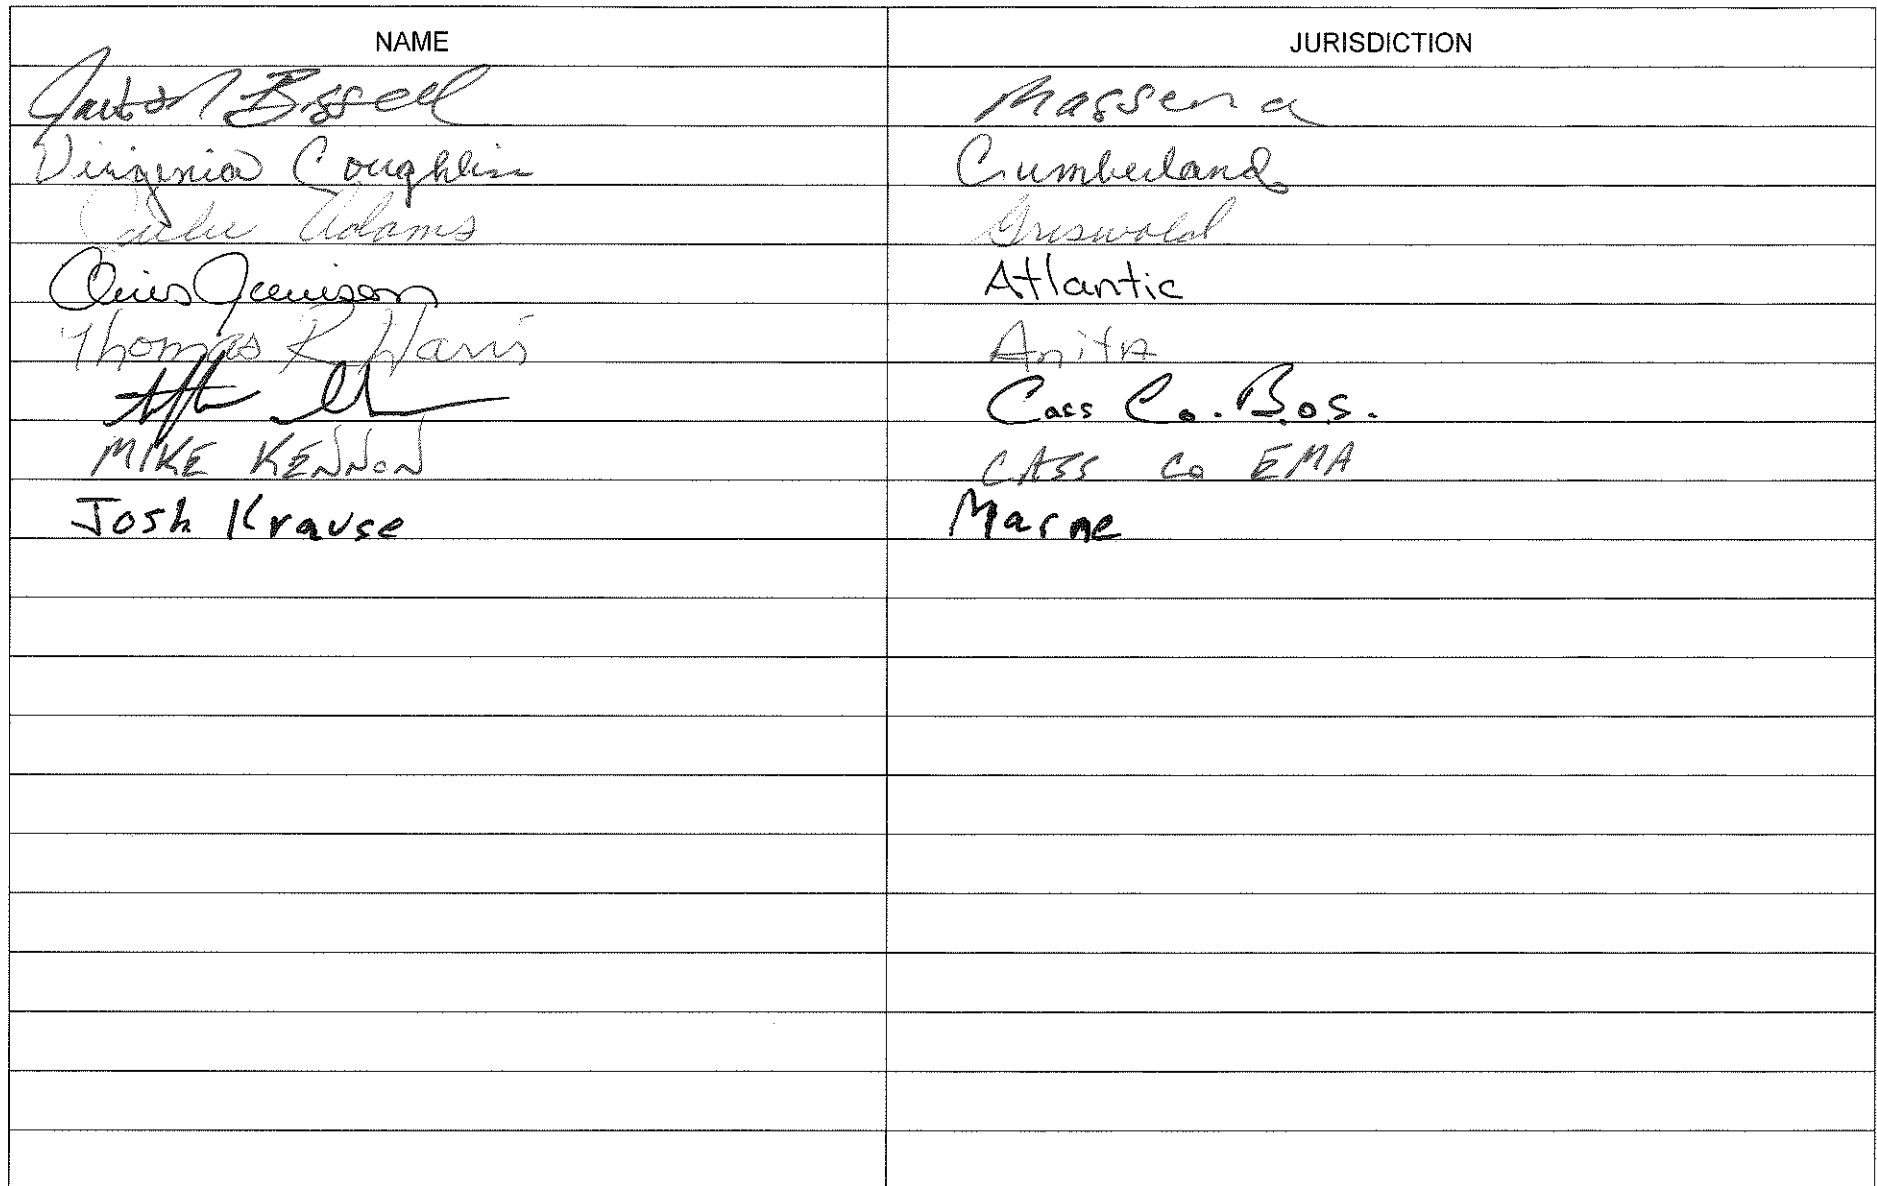 NAME JURISDICTION
Bissell Massena
Virginia Coughlin Cumberland
Adams Griswold
Chris Jennison Atlantic
Thomas R Harris Anita
Cass Co. B.o.S.
MIKE KENNON CASS Co EMA
Josh Krause Marne